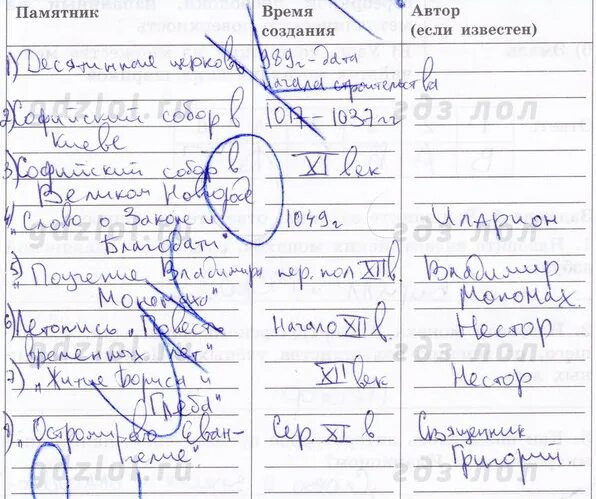 Памятник Время создания Автор (если известен)
1) Десятинная церковь 989г-дата
начала строительства
2) Софийский собор в 1017-1037гг
Киеве
3) Софийский собор в XI век
Великом Новгороде
4) „Слово о Законе 1049г Иларион
Благодати"
5) „Поучение Владимира пер. пол XII в. Владимир
Мономаха" Мономах.
6) Летопись „Повесть Начало XII в. Нестор
временных лет"
7) „Житие Бориса и XII век Нестор
Глеба"
8) „Остромирово Еван- Сер. XI в. Священник
гелие" Григорий.
gdzlol.ru гдз лол
gdzlol.ru гдз лол
гдз лол
gdzlol.ru гдз лол